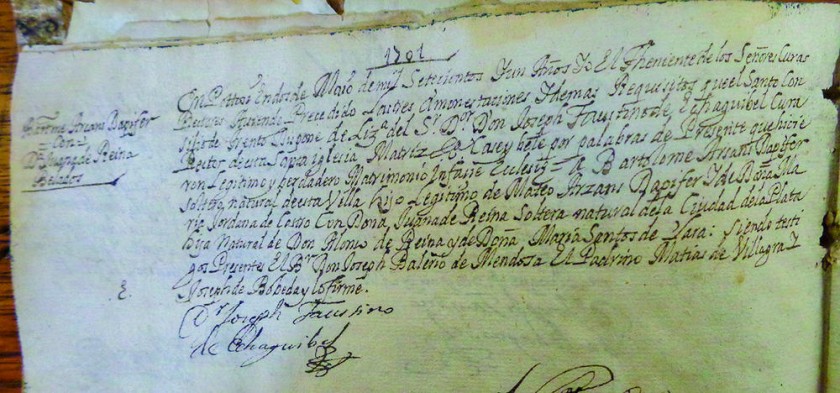 1701
Bartolome Arzans Dapifer
Con
Dª Juana de Reina
Velados
En Potosi en dos de Maio de mil Setecientos Y un Años Yo El Theniente de los Señores Curas
Rectores haviendo Precedido las tres Amonestaciones Y demas Requisitos que el Santo Con
silio de Trento dispone de Lizª del Sr Dor Don Joseph Faustino de Echaguibel Cura
Rector de esta Sta Iglesia Matriz Casey bele por palabras de Presente que hicie
ron Legitimo y verdadero Matrimonio Infasie Eclesie = A Bartolome Arsans Dapifer
soltero natural de esta Villa hijo Legitimo de Mateo Arzans Dapifer Y de Doña Ma
ria Jordana de Castro Con Doña Juana de Reina Soltera natural de la Ciudad de la Plata
hija Natural de Don Alonso de Reina y de Doña Maria Santos de Lara: siendo testi
gos Presentes El Br Don Joseph Baleño de Mendosa El Padrino Matias de Villagra Y
Joseph de Bobeda y lo firme.
Dr Joseph Faustino
de Echaguibel